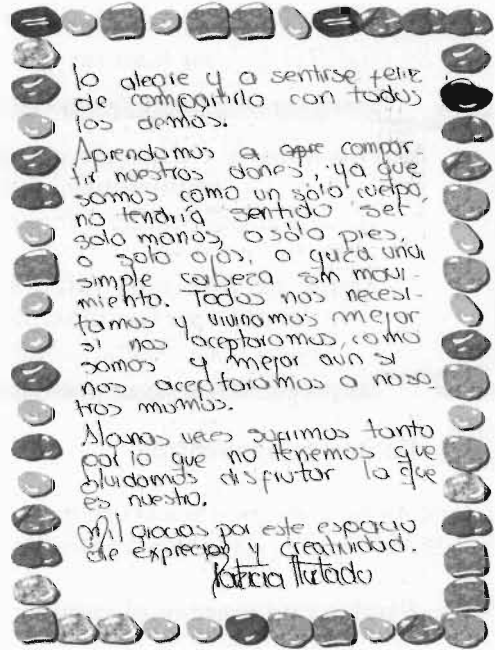 lo alegre y a sentirse feliz
de compartirlo con todos
los demás.
Aprendamos a apre compar-
tir nuestros dones, ya que
somos como un sólo cuerpo,
no tendría sentido ser
solo manos, o sólo pies,
o solo ojos, o quizá una
simple cabeza sin movi-
miento. Todos nos necesi-
tamos y viviriamos mejor
si nos aceptaramos, como
somos y mejor aun si
nos aceptaramos a noso
tros mismos.
Algunas veces sufrimos tanto
por lo que no tenemos que
olvidamos disfrutar lo que
es nuestro.
Mil gracias por este espacio
de exprecion y creatividad.
Patricia Hurtado